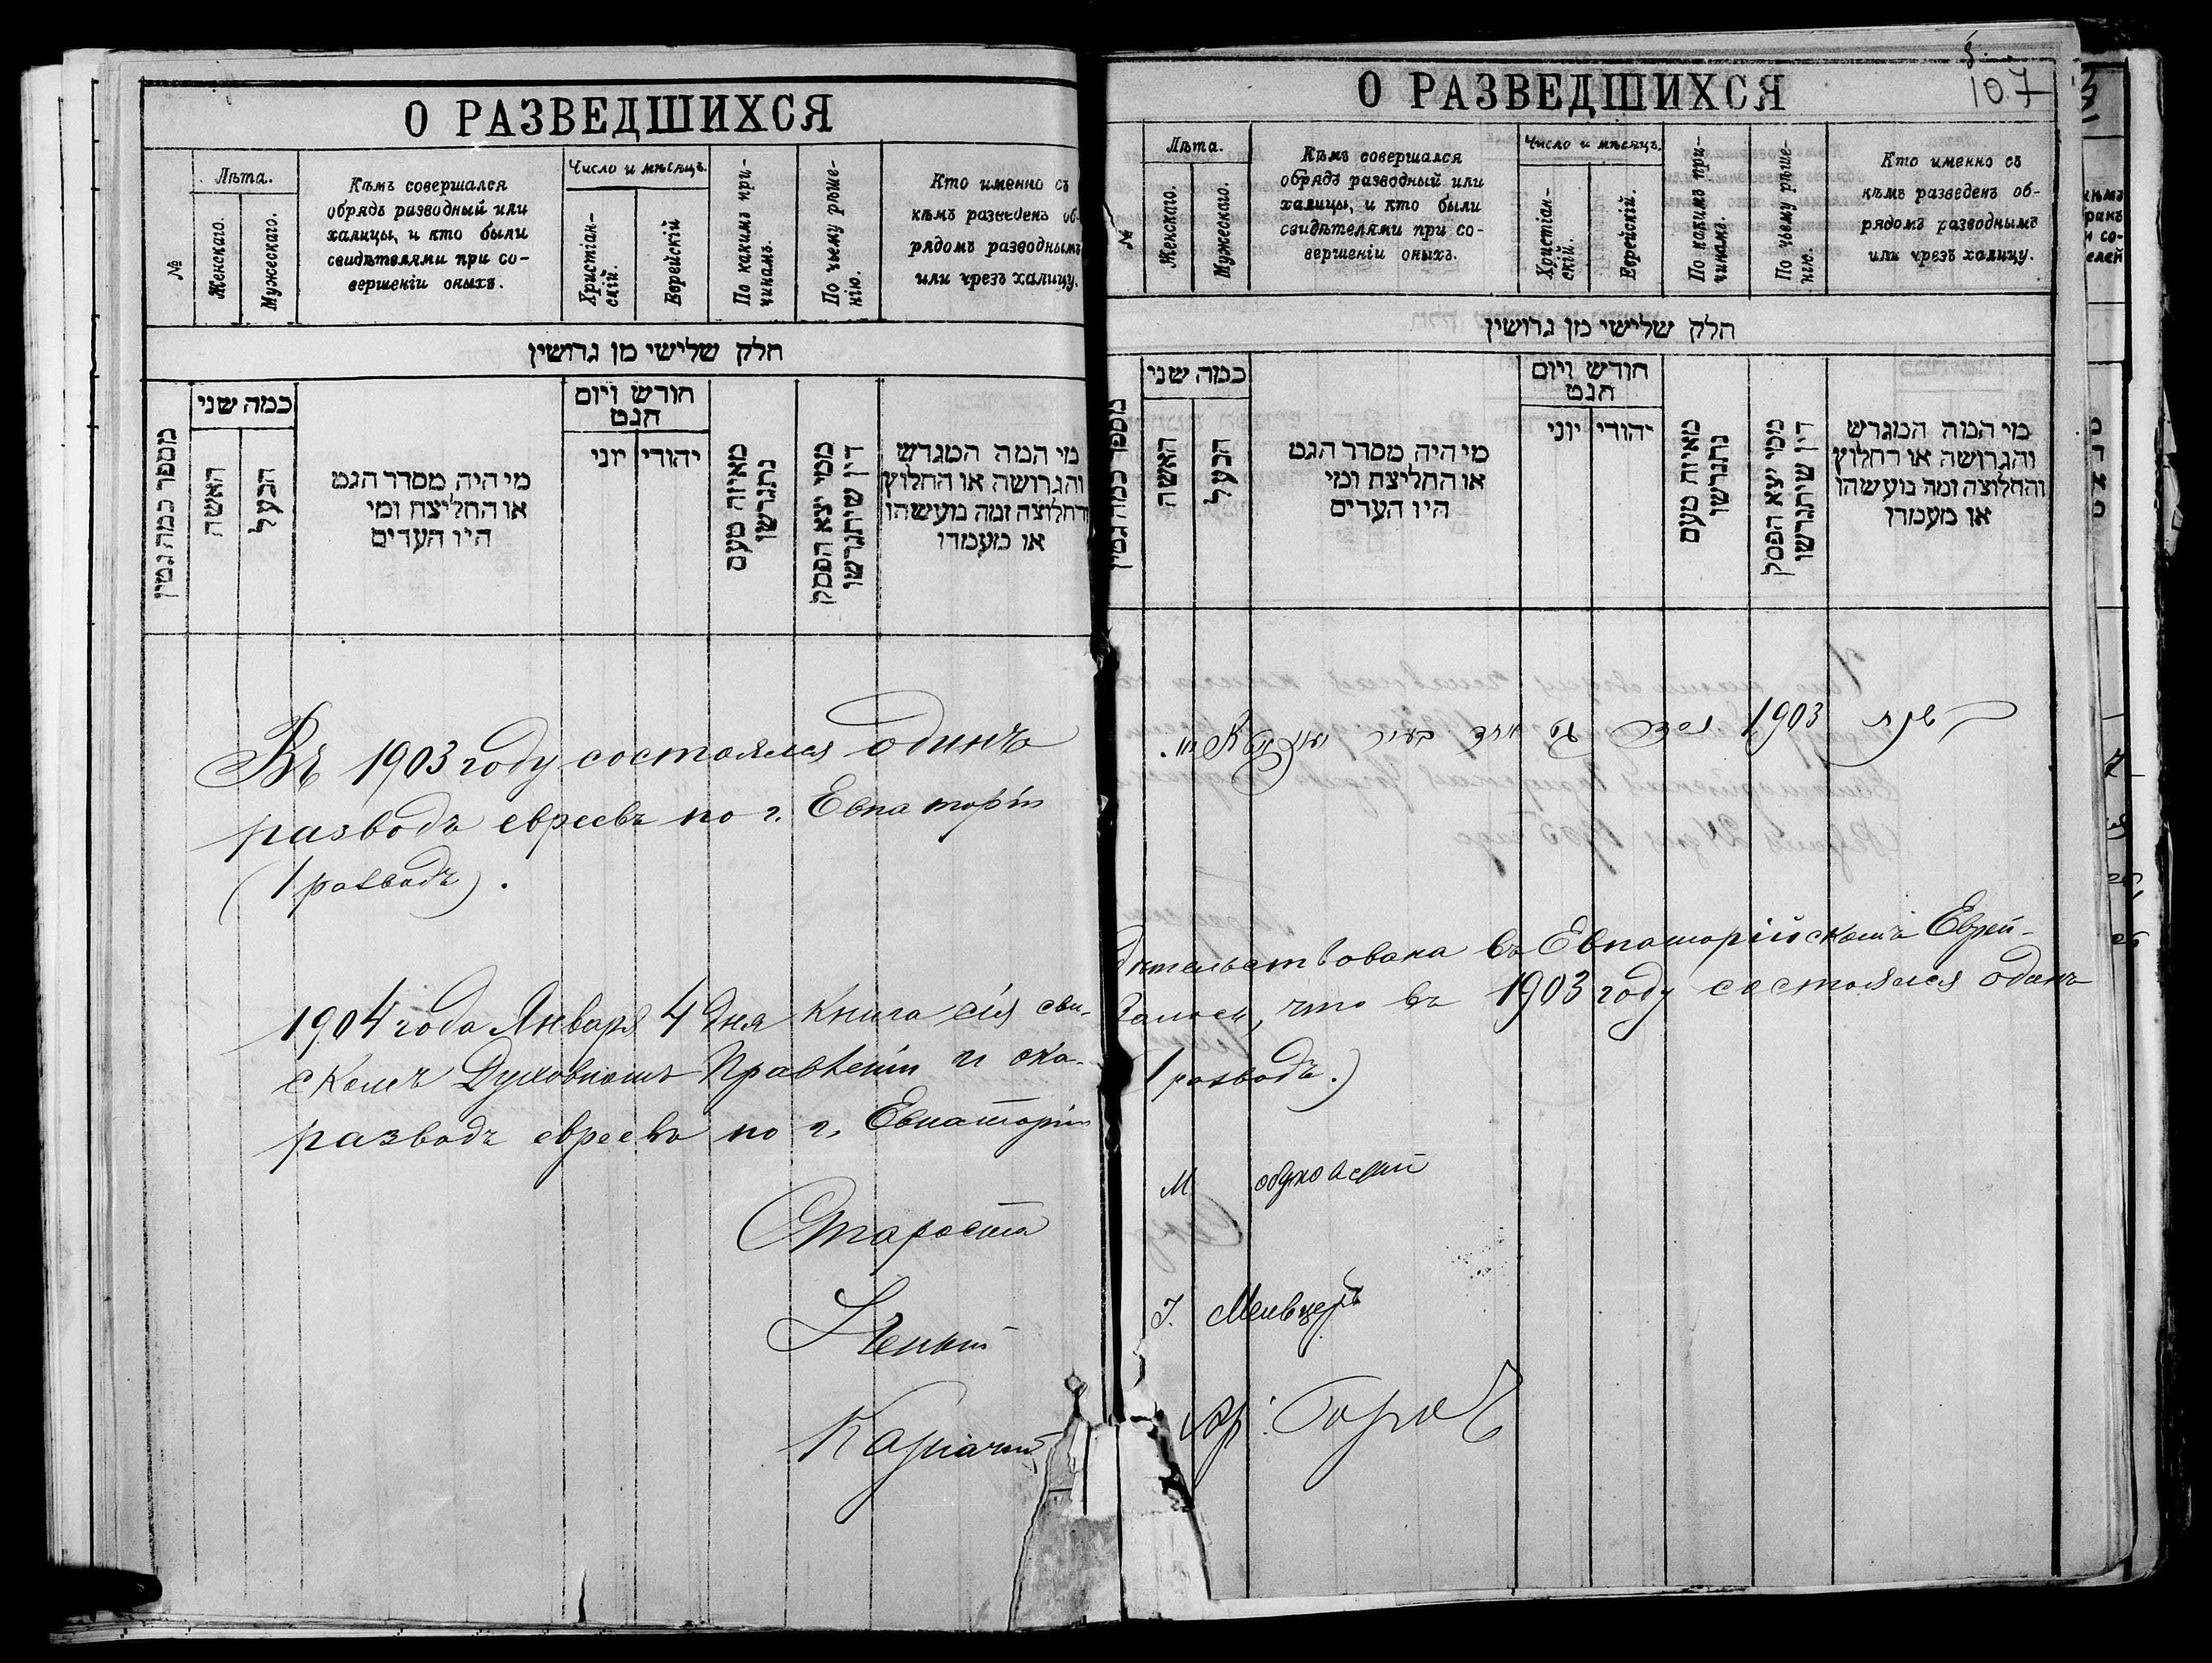 О РАЗВЕДШИХСЯ
№
Лѣта.
Женскаго.
Мужескаго.
Кѣмъ совершался
обрядъ разводный или
халицы, и кто были
свидѣтелями при со-
вершеніи оныхъ.
Число и мѣсяцъ.
Христіан-
скій.
Еврейскій
По какимъ при-
чинамъ.
По чьему рѣше-
нію.
Кто именно съ
кѣмъ разведенъ об-
рядомъ разводнымъ
или чрезъ халицу.
חלק שלישי מן גרושין
מספר כמה גטין
כמה שני
האשה
הבעל
מי היה מסדר הגט
או החליצה ומי
היו העדים
חודש ויום
הגט
יהודי
יוני
מאיזה טעם
נתגרשו
ממי יצא הפסק
דין שיתגרשו
מי המה המגרש
והגרושה או החלוץ
והחלוצה ומה מעשהו
או מעמדו
Въ 1903 году состоялся одинъ
разводъ евреевъ по г. Евпаторіи
(1 разводъ).
1904 года Января 4 дня книга сія сви-
скомъ Духовномъ Правленіи и ока-
разводъ евреевъ по г. Евпаторіи
Староста
Ученый
Казначей
107
О РАЗВЕДШИХСЯ
№
Лѣта.
Женскаго.
Мужескаго.
Кѣмъ совершался
обрядъ разводный или
халицы, и кто были
свидѣтелями при со-
вершеніи оныхъ.
Число и мѣсяцъ.
Христіан-
скій.
Еврейскій.
По какимъ при-
чинамъ.
По чьему рѣше-
нію.
Кто именно съ
кѣмъ разведенъ об-
рядомъ разводнымъ
или чрезъ халицу.
חלק שלישי מן גרושין
כמה שני
האשה
הבעל
מי היה מסדר הגט
או החליצה ומי
היו העדים
חודש ויום
הגט
יהודי
יוני
מאיזה טעם
נתגרשו
ממי יצא הפסק
דין שיתגרשו
מי המה המגרש
והגרושה או החלוץ
והחלוצה ומה מעשהו
או מעמדו
1903
дѣтельствована въ Евпаторійскомъ Еврей-
залось, что въ 1903 году состоялся одинъ
(1 разводъ.)
М
І. Мельцеръ